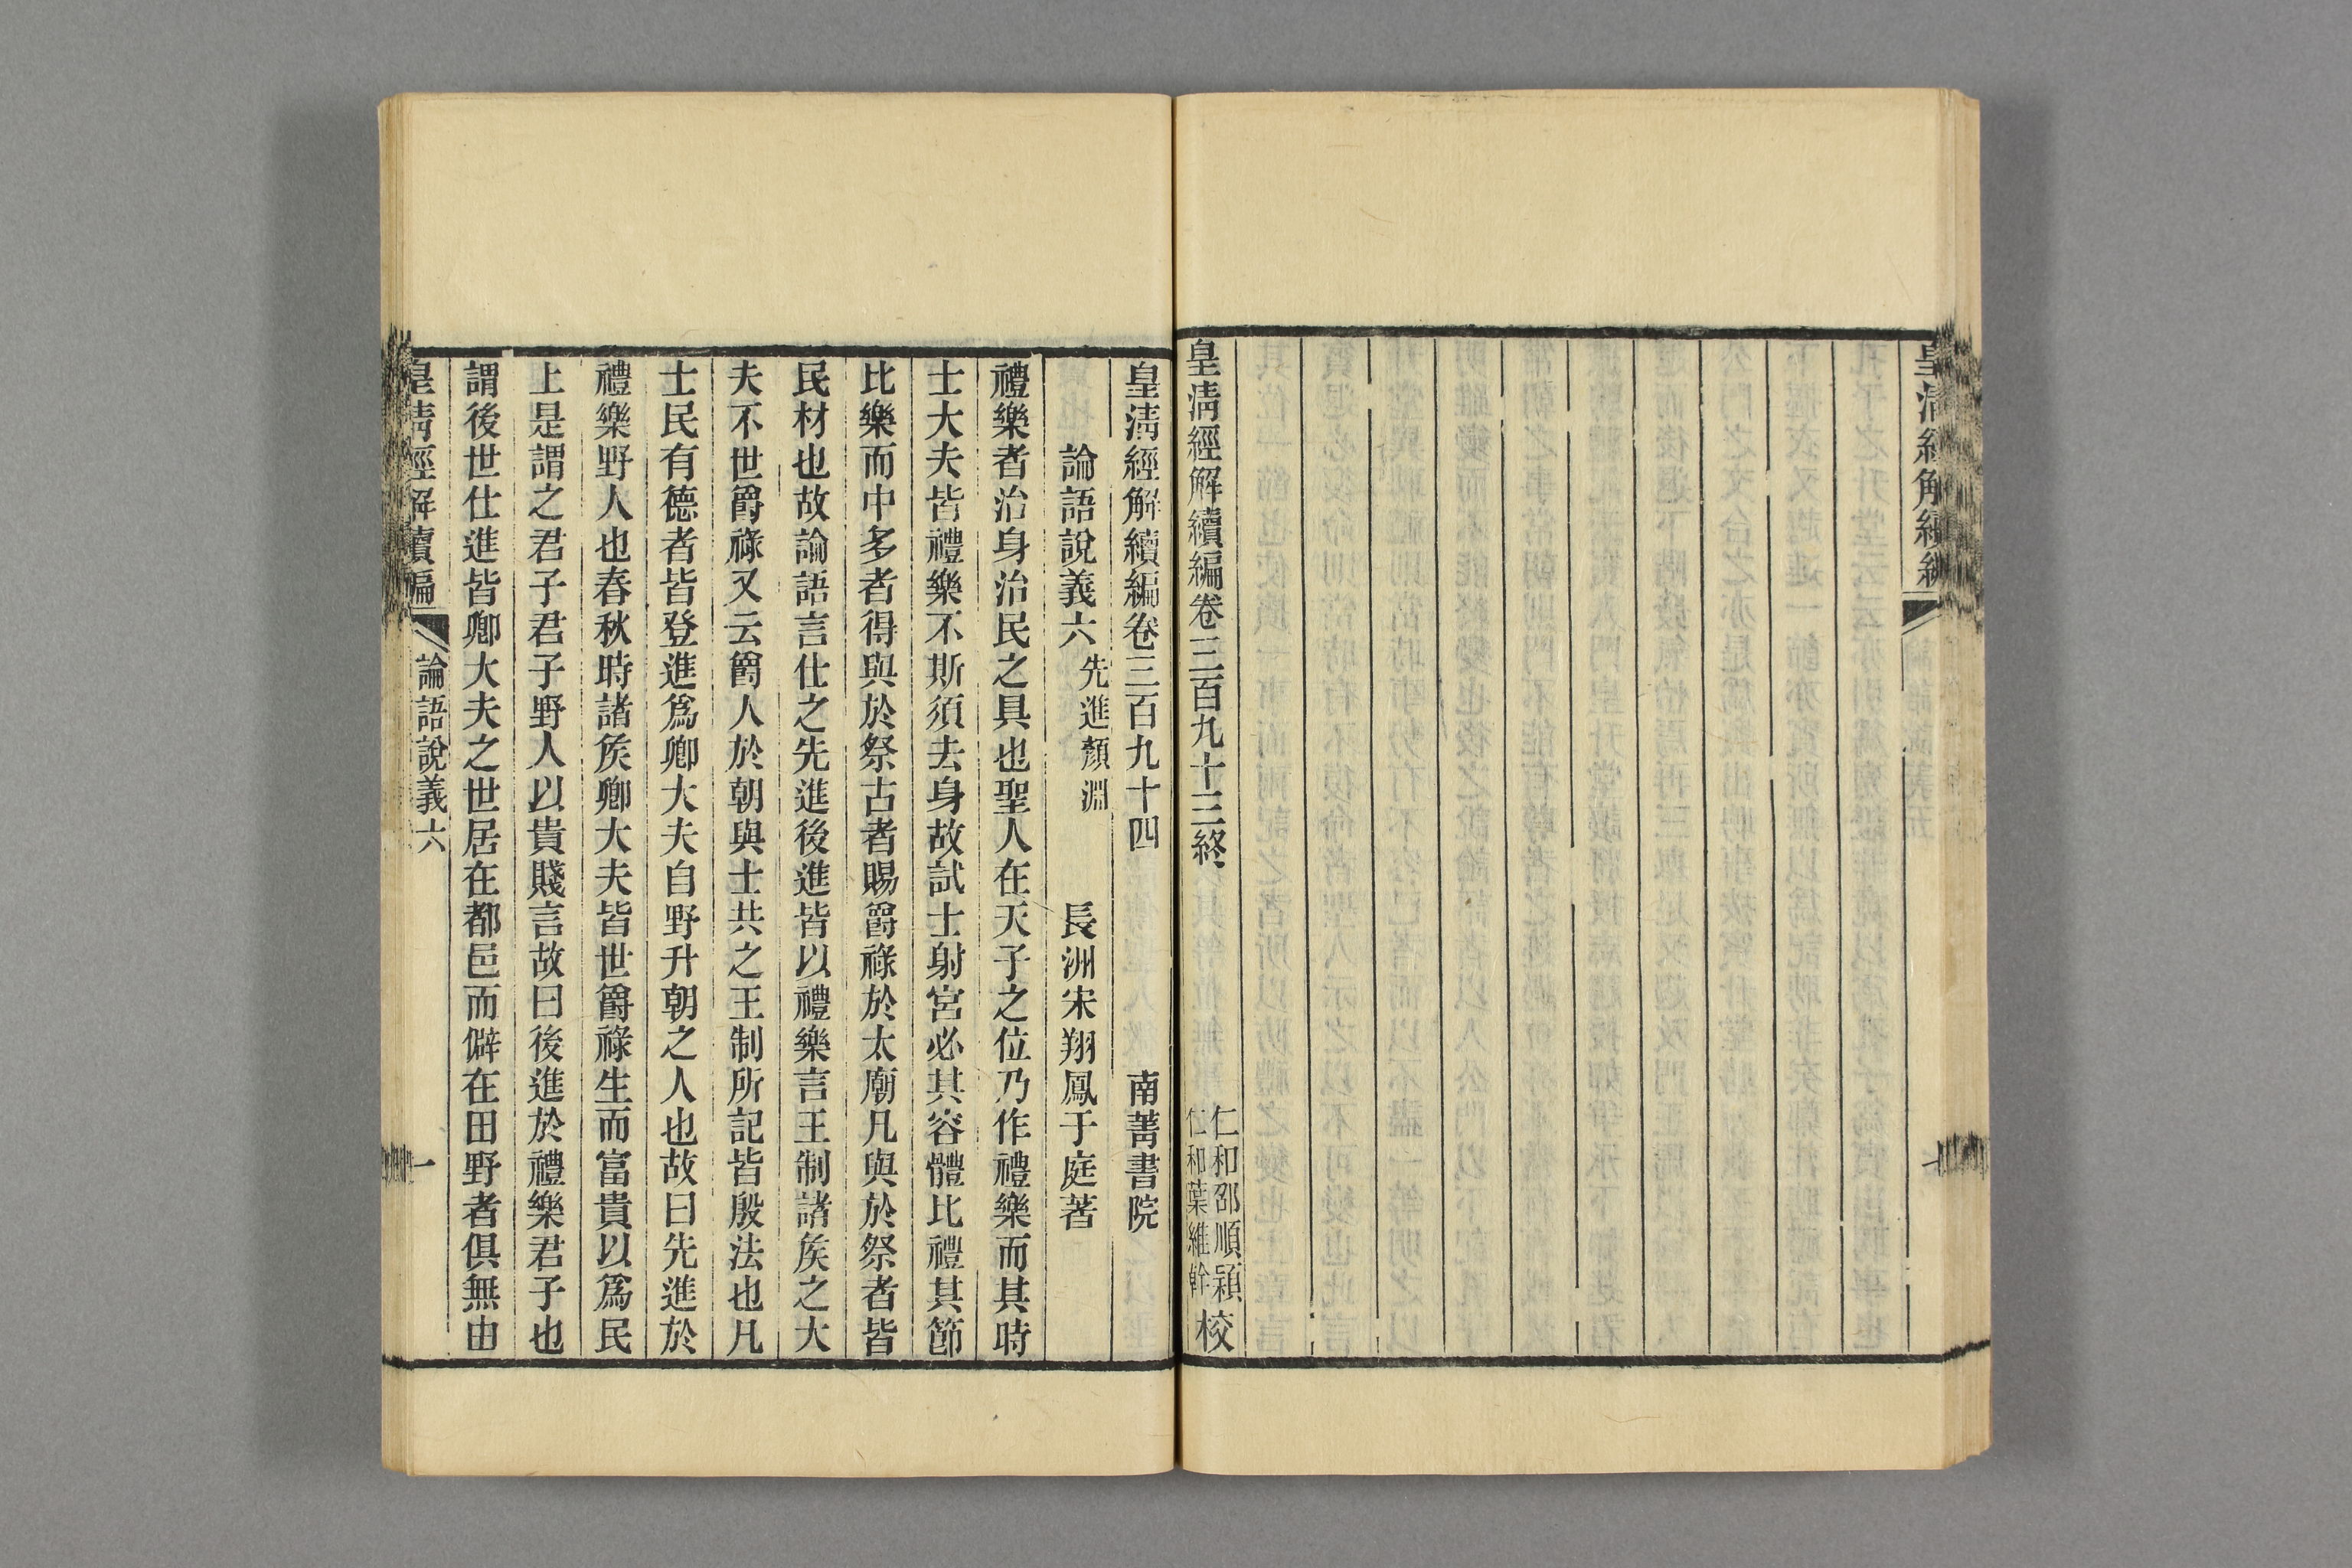 皇清經解續編
皇清經解續編卷三百九十三終
仁和邵順穎
仁和葉維幹
校
皇清經解續編卷三百九十四
南菁書院
論語說義六
先進
顏淵
長洲宋翔鳳于庭著
禮樂者治身治民之具也聖人在天子之位乃作禮樂而其時
士大夫皆禮樂不斯須去身故試士射宮必其容體比禮其節
比樂而中多者得與於祭古者賜爵祿於太廟凡與於祭者皆
民材也故論語言仕之先進後進皆以禮樂言王制諸矦之大
夫不世爵祿又云爵人於朝與士共之王制所記皆殷法也凡
士民有德者皆登進爲卿大夫自野升朝之人也故曰先進於
禮樂野人也春秋時諸矦卿大夫皆世爵祿生而富貴以爲民
上是謂之君子君子野人以貴賤言故曰後進於禮樂君子也
謂後世仕進皆卿大夫之世居在都邑而僻在田野者俱無由
皇清經解續編
論語說義六
一